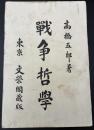 高橋五郎著
戰爭哲學
東京 文榮閣藏版